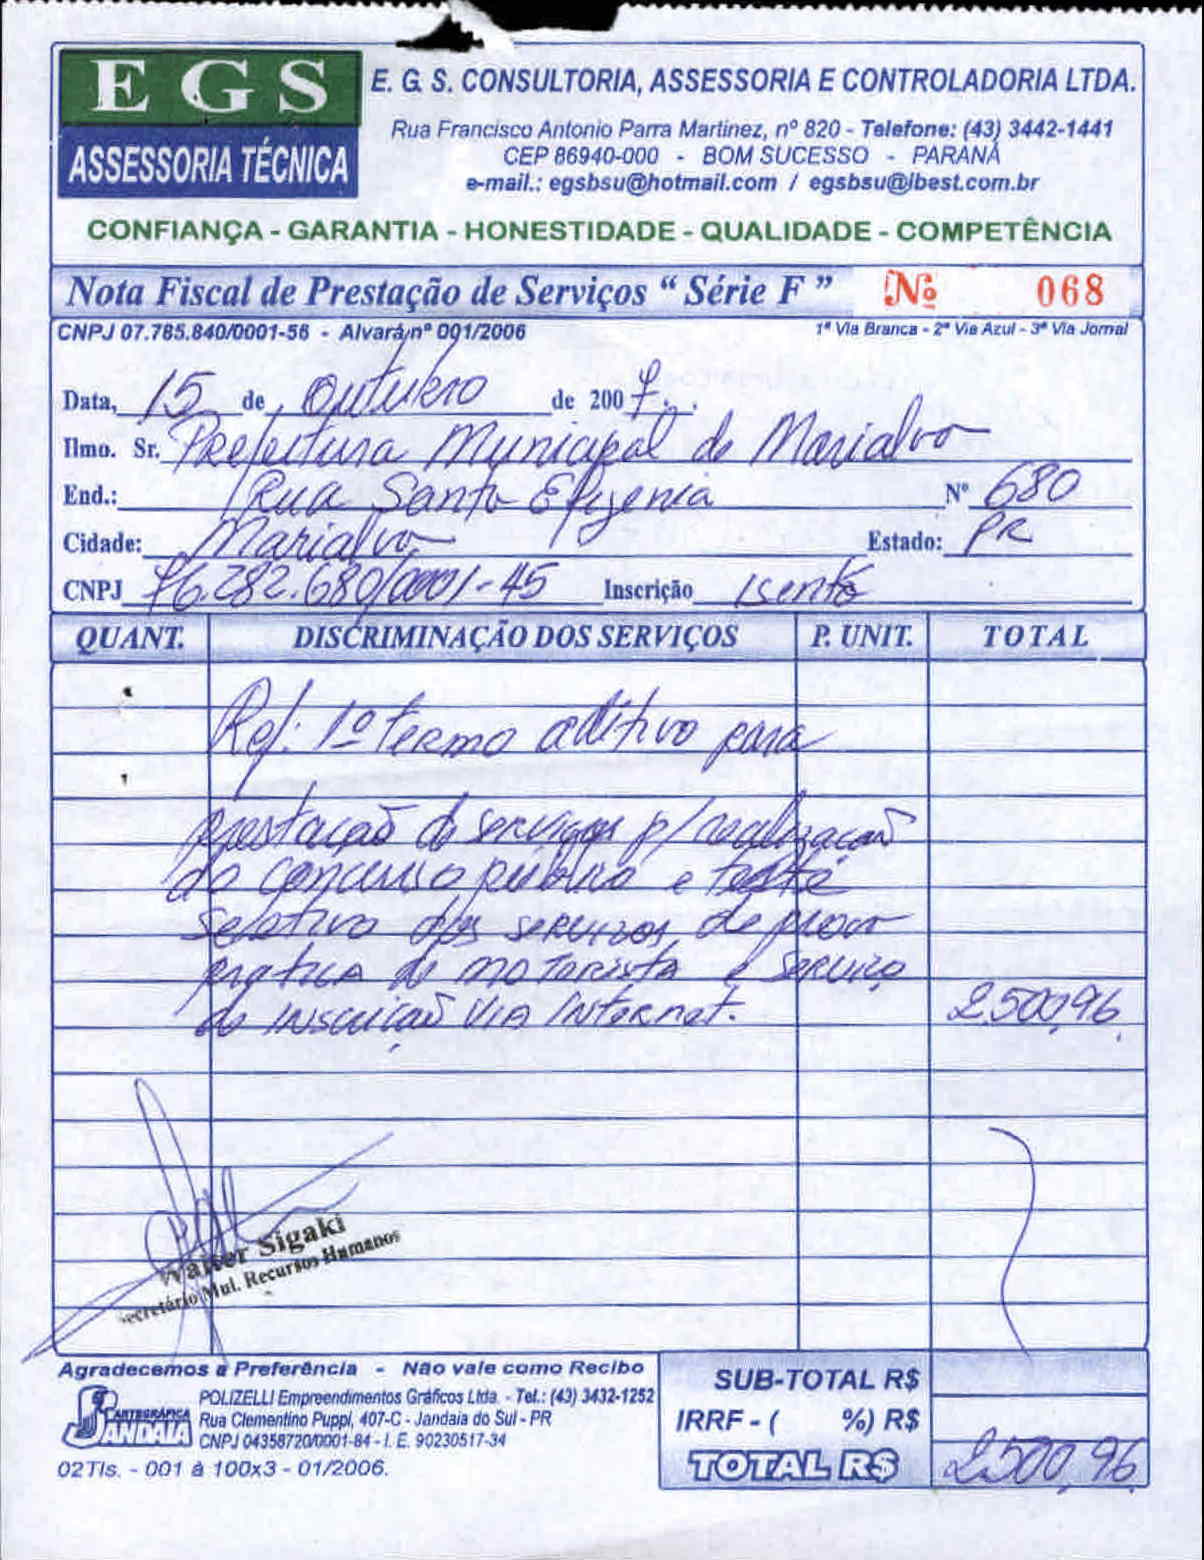 EGS
ASSESSORIA TÉCNICA
E. G. S. CONSULTORIA, ASSESSORIA E CONTROLADORIA LTDA.
Rua Francisco Antonio Parra Martinez, nº 820 - Telefone: (43) 3442-1441
CEP 86940-000 - BOM SUCESSO - PARANÁ
e-mail.: egsbsu@hotmail.com / egsbsu@ibest.com.br
CONFIANÇA - GARANTIA - HONESTIDADE - QUALIDADE - COMPETÊNCIA
Nota Fiscal de Prestação de Serviços “ Série F ” Nº 068
CNPJ 07.785.840/0001-56 - Alvará nº 001/2006 1ª Via Branca - 2ª Via Azul - 3ª Via Jornal
Data, 15 de Outubro de 2007.
Ilmo. Sr. Prefeitura Municipal de Marialva
End.: Rua Santa Efigenia Nº 680
Cidade: Marialva Estado: PR
CNPJ 76.282.680/0001-45 Inscrição Isento
QUANT. DISCRIMINAÇÃO DOS SERVIÇOS P. UNIT. TOTAL
Ref: 1º termo aditivo para
prestação de serviços p/ realização
do concurso público e teste
seletivo dos serviços de prova
pratica de motorista e serviço
de inscrição via internet. 2.500,96
Walter Sigaki
Secretário Mul. Recursos Humanos
Agradecemos a Preferência - Não vale como Recibo
ARTEGRÁFICA JANDAIA
POLIZELLI Empreendimentos Gráficos Ltda. - Tel.: (43) 3432-1252
Rua Clementino Puppi, 407-C - Jandaia do Sul - PR
CNPJ 04358720/0001-84 - I. E. 90230517-34
02Tls. - 001 à 100x3 - 01/2006.
SUB-TOTAL R$
IRRF - ( %) R$
TOTAL R$ 2.500,96